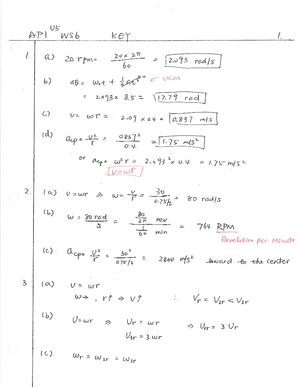 API U5 WS6 KEY 1.
1. a) 20 rpm = 20 × 2π / 60 = 2.093 rad/s
b) Δθ = ω₁t + ½αt² ← UCM
= 2.093 × 8.5 = 17.79 rad
c) v = ωr = 2.09 × 0.4 = 0.837 m/s
(d) acp = v²/r = 0.837²/0.4 = 1.75 m/s²
or acp = ω²r = 2.093² × 0.4 = 1.75 m/s²
v=ωr
2. (a) v = ωr ⇒ ω = v/r = 30 / 0.75/2 = 80 rad/s
(b) ω = 80 rad / s = 80/2π rev / 1/60 min = 764 RPM
Revolution per Minute
(c) acp = v²/r = 30² / 0.75/2 = 2400 m/s² toward to the center
3 (a) v = ωr
ω→, r↑ ⇒ v↑ ∴ Vr < V2r < V3r
(b) v = ωr ⇒ Vr = ωr
V3r = 3ωr ⇒ V3r = 3 Vr
(c) ωr = ω2r = ω3r